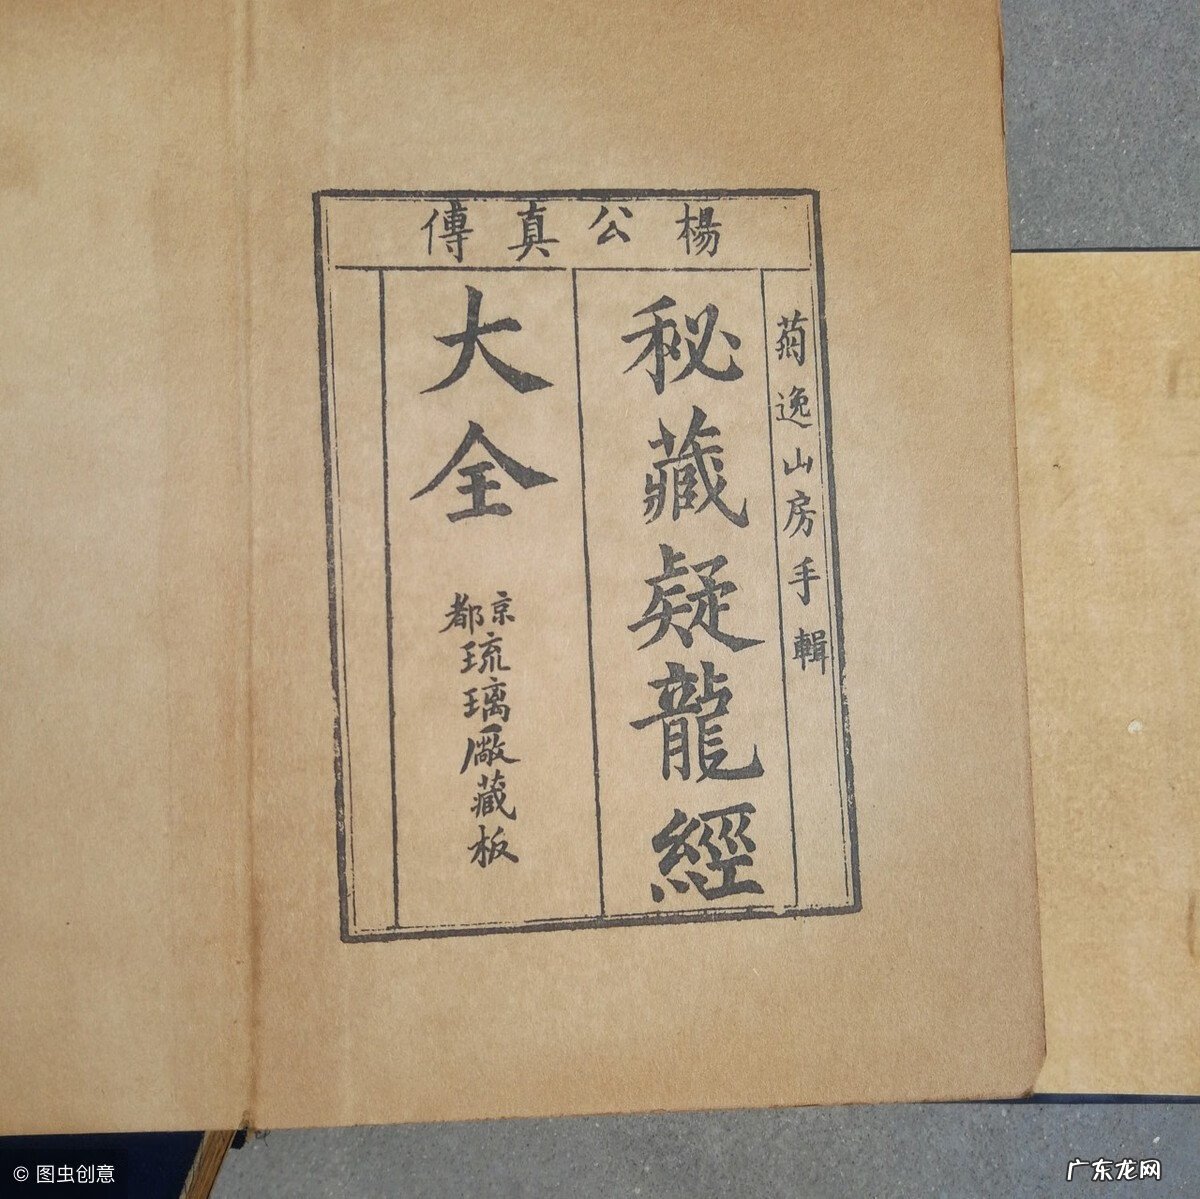 楊公真傳
菊逸山房手輯
秘藏疑龍經
大全
京都
琉璃厰藏板
© 图虫创意
广东龙网